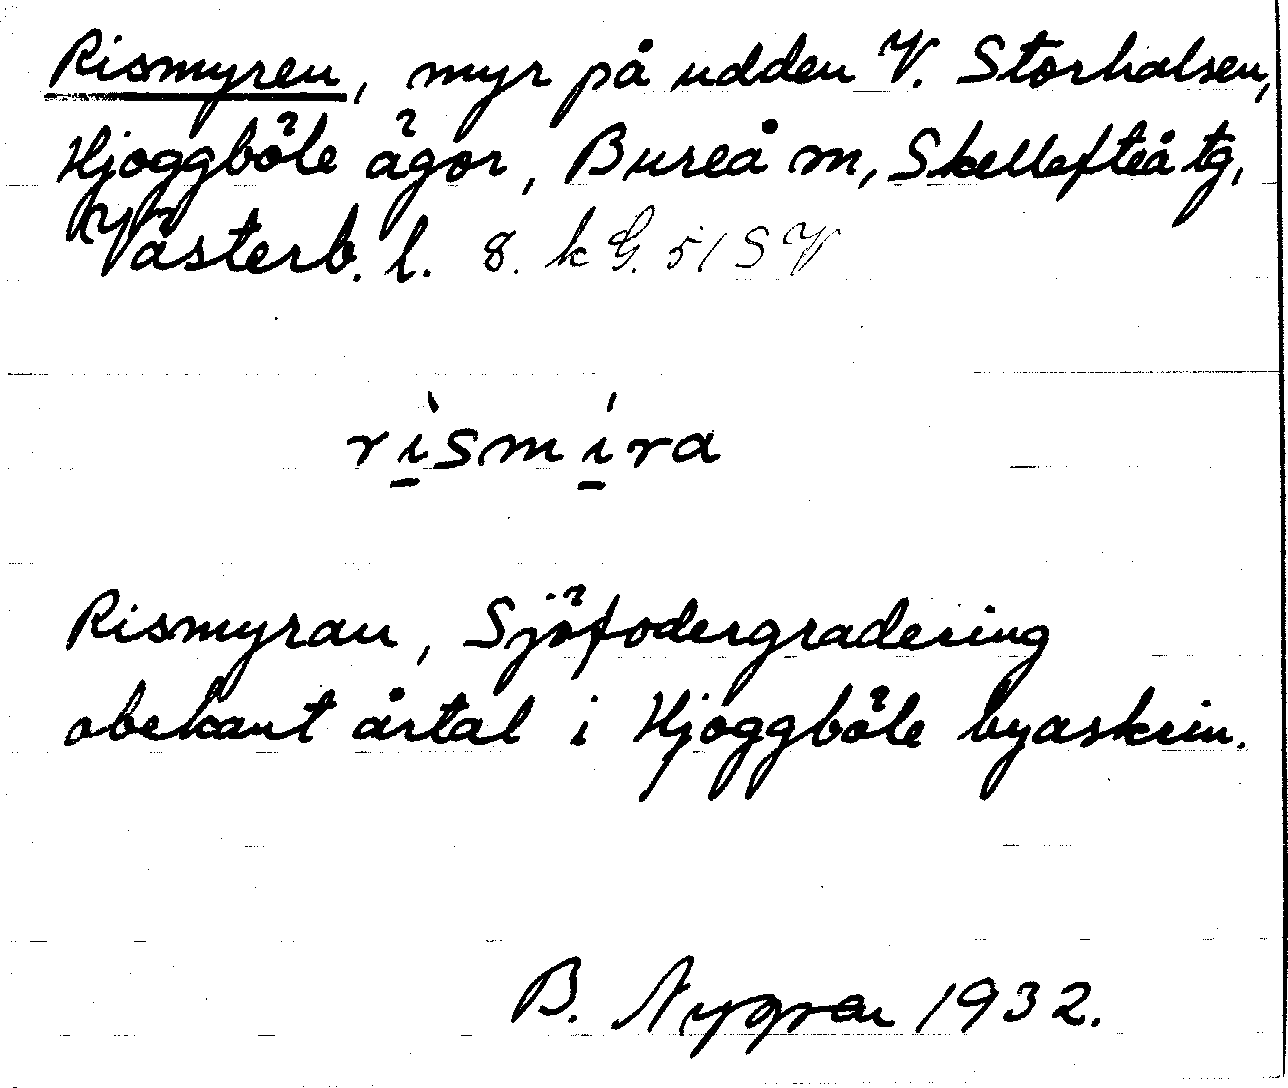 Rismyren, myr på udden V. Storhalsen,
Hjoggböle ägor, Bureå m, Skellefteå tg,
Västerb. l. 8. k G. 51 SV
rìsmíra
Rismyran, Sjöfodergradering
obekant årtal i Hjoggböle byaskrin.
B. Nygren 1932.